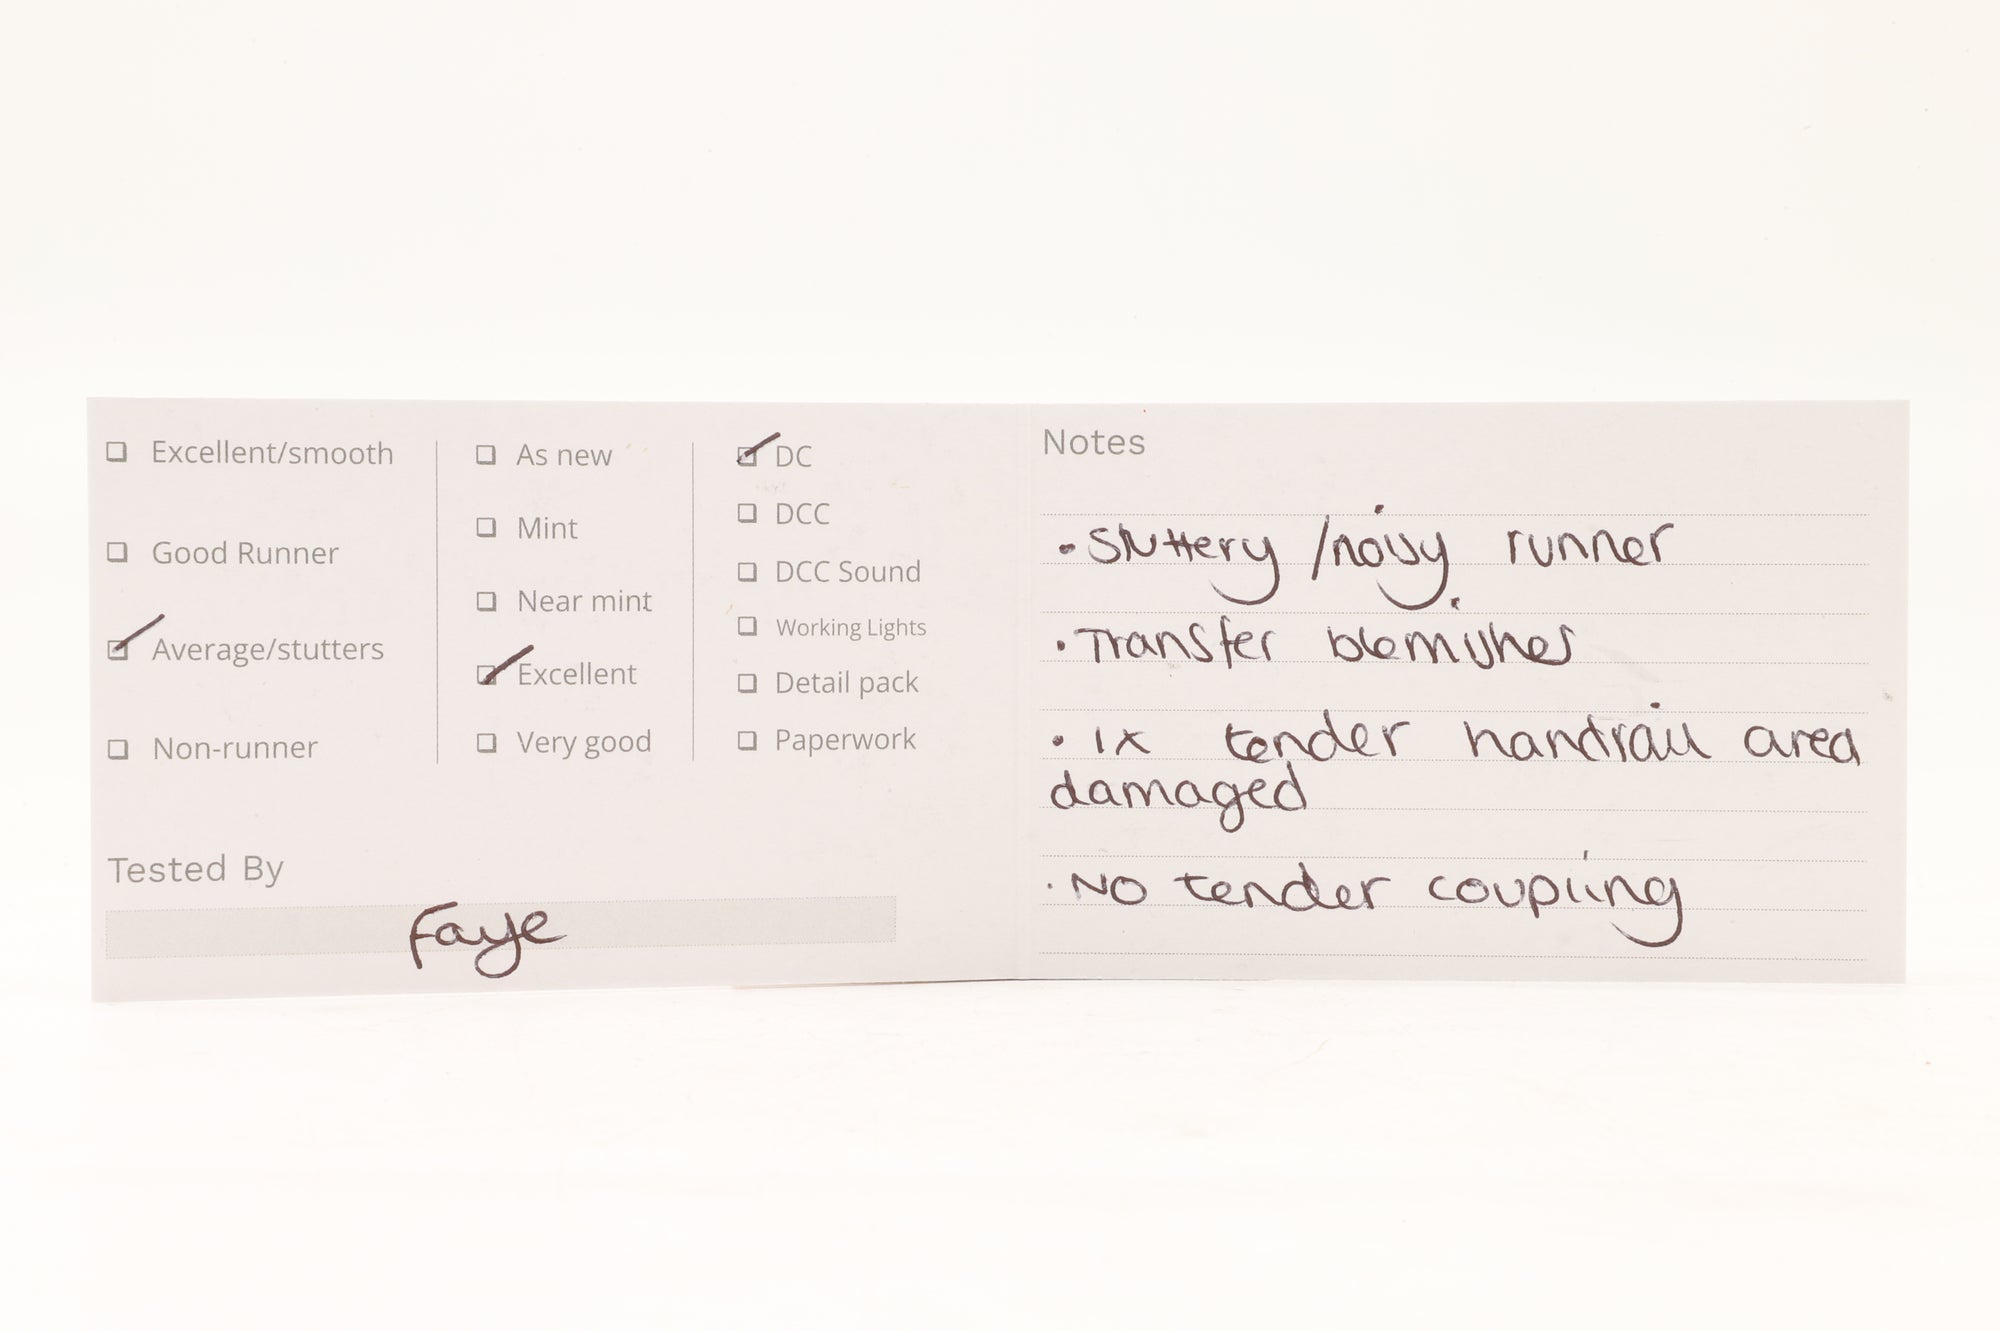 ☐ Excellent/smooth
☐ Good Runner
☑ Average/stutters
☐ Non-runner
☐ As new
☐ Mint
☐ Near mint
☑ Excellent
☐ Very good
☑ DC
☐ DCC
☐ DCC Sound
☐ Working Lights
☐ Detail pack
☐ Paperwork
Tested By
Faye
Notes
• Stuttery /noisy runner
• Transfer blemishes
• 1x tender handrail area
damaged
• No tender coupling